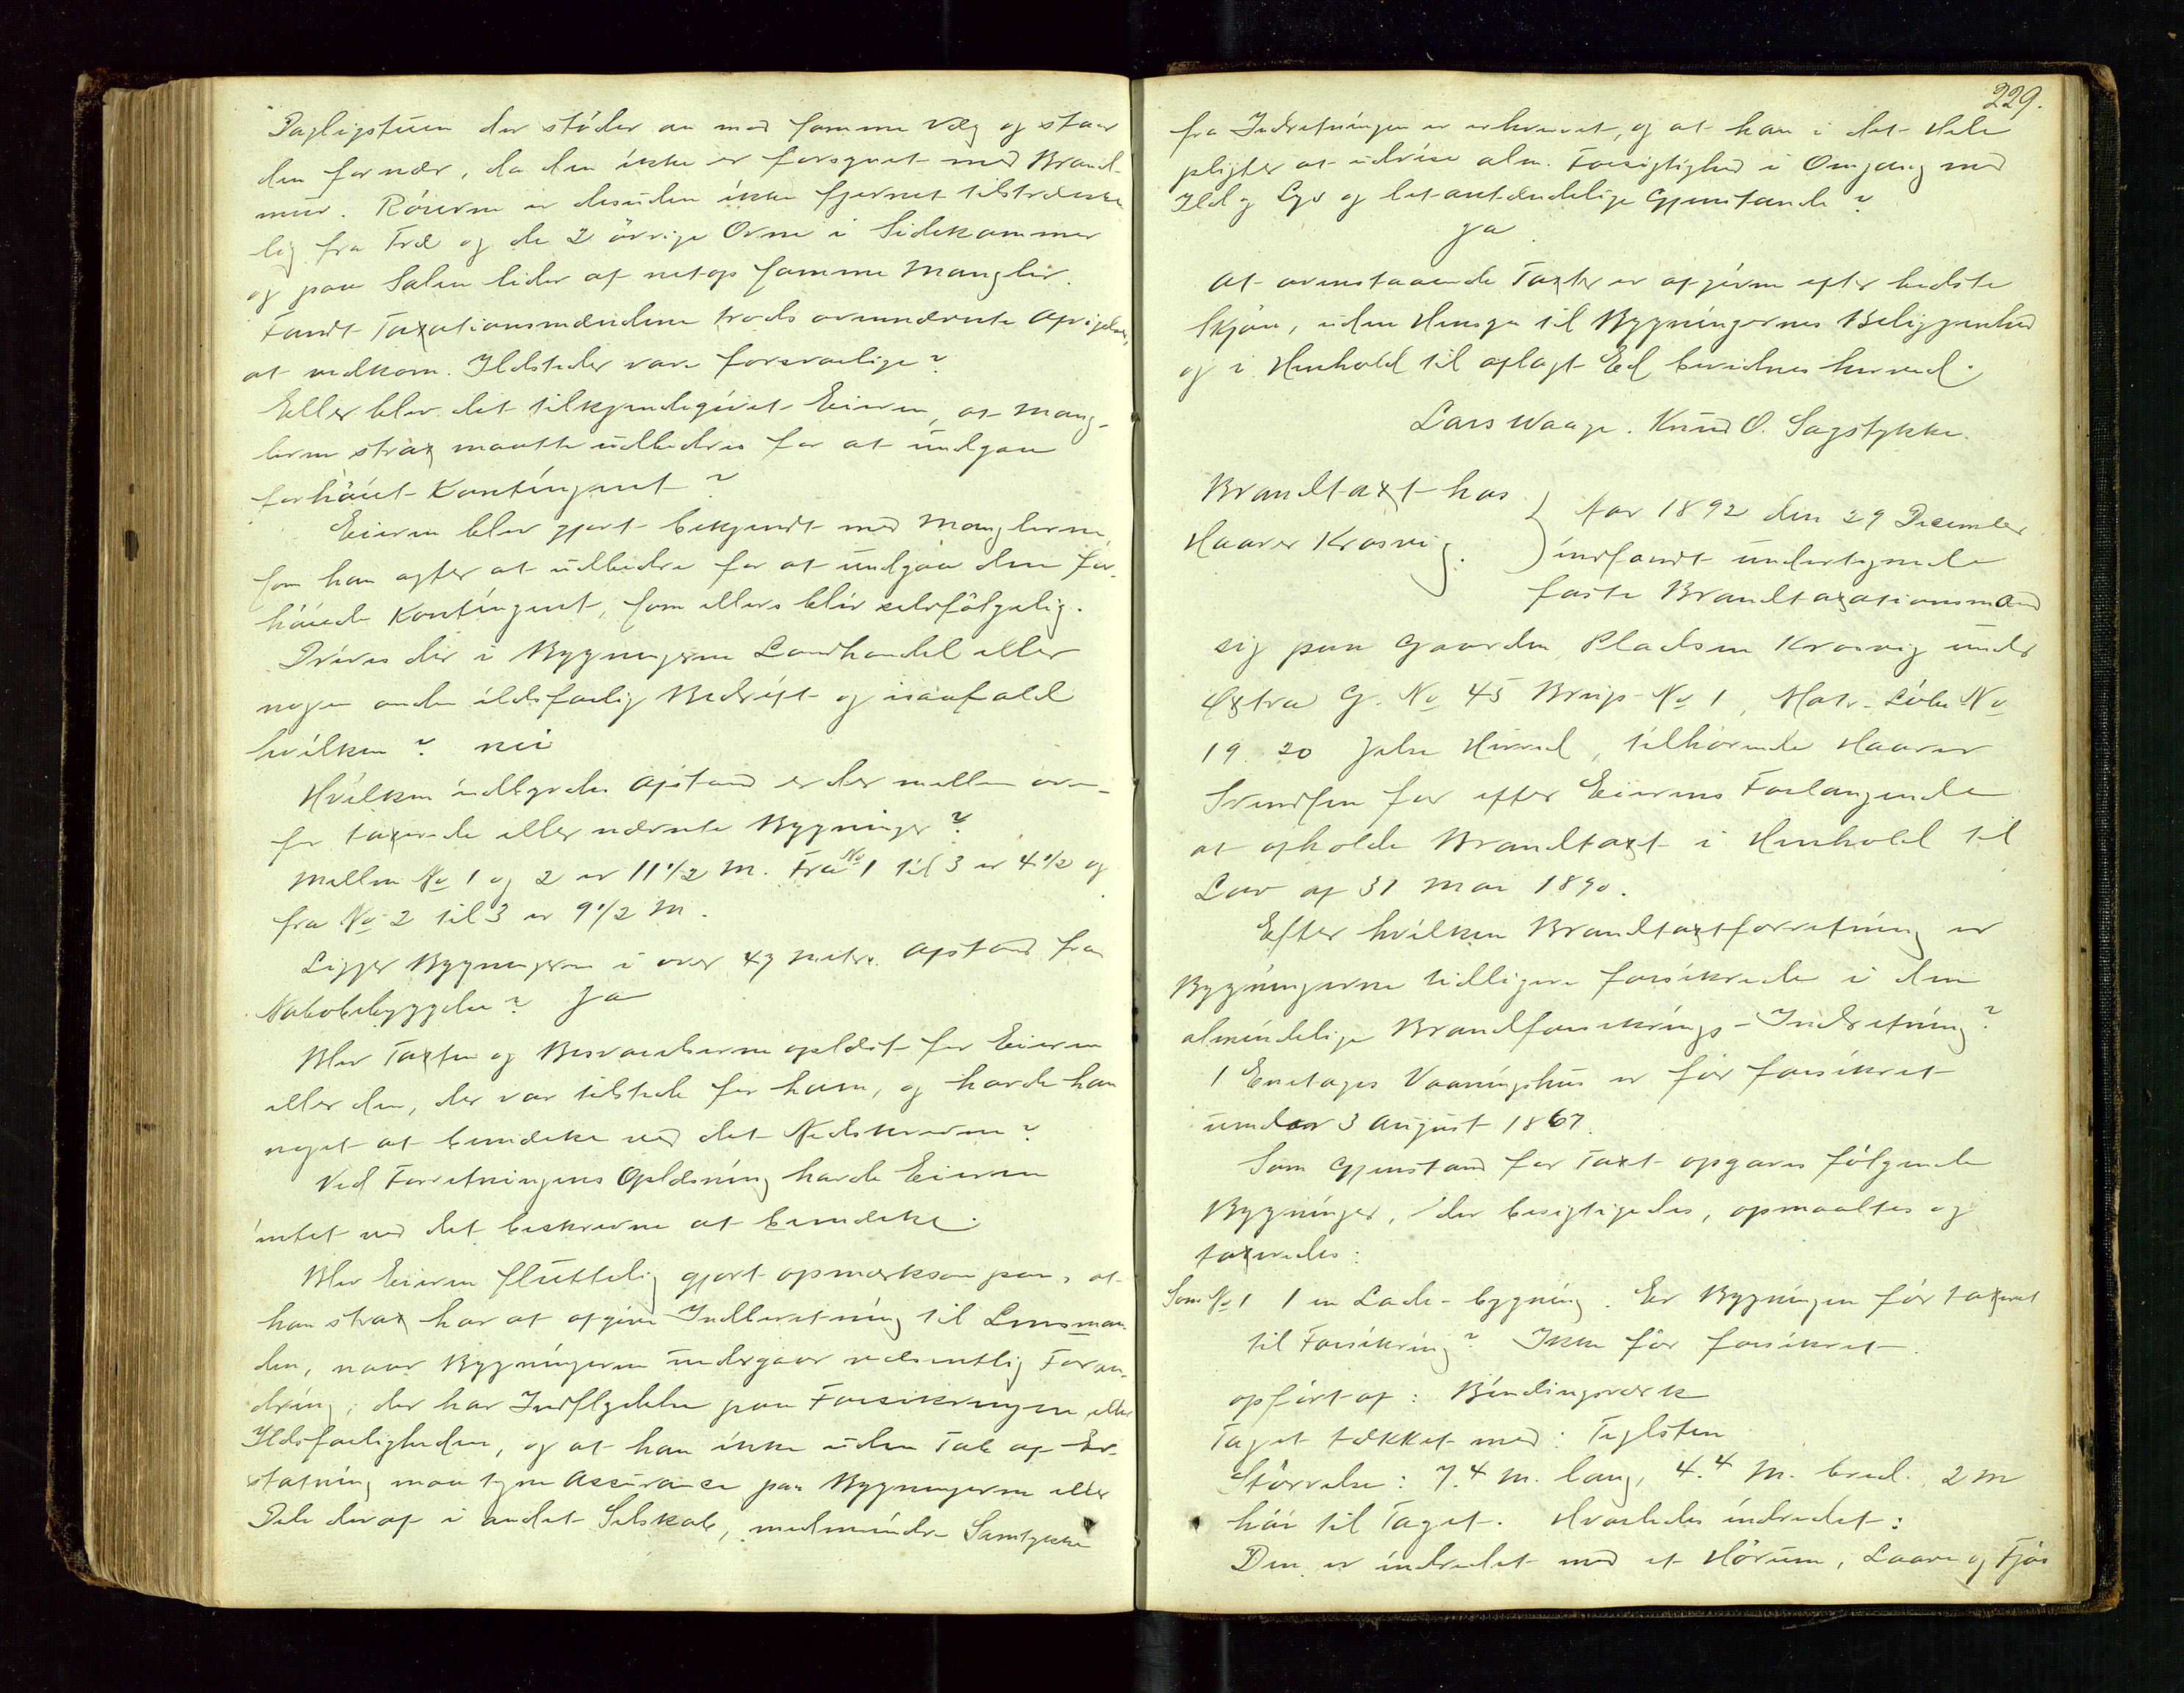 Dagligstuen der støder an med samme Væg og staar
den for nær, da den ikke er forsynet med Brand-
mur. Rørerne er desuden ikke fjernet tilstrække
lig fra Træ og de 2 øvrige Ovne i Sidekammer
og paa Salen lider af netop samme Mangler.
Fandt Taxationsmændene trods ovennævnte Afvigelser,
at vedkom. Ildsteder vare forsvarlige?
Eller blev det tilkjendegivet Eieren, at Mang-
lerne strax maatte udbedres for at undgaa
forhøiet Kontingent?
Eieren blev gjort bekjendt med Manglerne,
som han agter at udbedre for at undgaa den for-
høiede Kontingent, som ellers blir selvfølgelig.
Drives der i Bygningerne Landhandel eller
nogen anden ildsfarlig Bedrift og isaafald
hvilken? nei
Hvilken indbyrdes Afstand er der mellem oven-
for taxerede eller nævnte Bygninger?
Mellem No 1 og 2 er 11 1/2 M. Fra No 1 til 3 er 4 1/2 og
fra No 2 til 3 er 9 1/2 M.
Ligger Bygningerne i over 47 Metr. Afstand fra
Nabobebyggelse? Ja
Blev Taxten og Besvarelserne oplæst for Eieren
eller den, der var tilstede for ham, og havde han
noget at bemærke ved det Nedskrevne?
Ved Forretningens Oplæsning havde Eieren
intet ved det beskrevne at bemærke.
Blev Eieren sluttelig gjort opmærksom paa, at
han strax har at afgive Indberetning til Lensman-
den, naar Bygningerne undergaar væsentlig Foran-
dring, der har Indflydelse paa Forsikringen eller
Ildsfarligheden, og at han ikke uden Tab af Er-
statning maa tegne Assurance paa Bygningerne eller
Dele deraf i andet Selskab, medmindre Samtykke
229.
fra Indretningen er erhvervet, og at han i det Hele
pligter at udvise alm. Forsigtighed i Omgang med
Ild og Lys og let antændelige Gjenstande?
Ja
At ovenstaaende Taxter er afgivne efter bedste
Skjøn, uden Hensyn til Bygningernes Beliggenhed
og i Henhold til aflagt Ed bevidnes herved.
Lars Waage. Knud O. Sagstykke.
Brandtaxt hos
Haaver Krosvig.
Aar 1892 den 29 December
indfandt undertegnede
faste Brandtaxationsmænd
sig paa Gaarden Pladsen Krosvig under
Østraa G. No 45 Brugs No 1, Matr. Löbe No
19. 20 Jelse Herred, tilhørende Haaver
Svendsen for efter Eierens Forlangende
at afholde Brandtaxt i Henhold til
Lov af 31 Mai 1890.
Efter hvilken Brandtaxtforretning er
Bygningerne tidligere forsikrede i den
almindelige Brandforsikrings-Indretning?
1 Enetages Vaaningshus er før forsikret
under 3 August 1867.
Som Gjenstand for Taxt opgaves følgende
Bygninger, der besigtigedes, opmaaltes og
taxeredes:
Som No 1 1 en Lade-bygning. Er Bygningen før taxeret
til Forsikring? Ikke før forsikret.
opført af: Bindingsværk
Taget tækket med: Teglsten
Størrelse: 7.4 M. lang, 4.4 M. bred. 2 M
høi til Taget. Hvorledes indredet:
Den er indredet med et Hørum, Laave og Fjøs